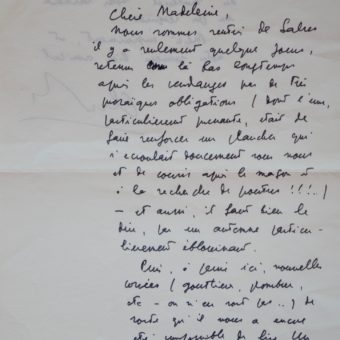 Chère Madeleine,
Nous sommes rentrés de
il y a seulement quelques jours,
retenus là bas longtemps
après les vendanges par de très
prosaïques obligations (dont l'une,
particulièrement prenante, était de
faire renforcer un plancher qui
s'écroulait doucement sous nous
et de courir après le maçon et
à la recherche de poutres !!!..)
– et aussi, il faut bien le
dire, par un automne particu-
lièrement éblouissant.
Puis, à peine ici, nouvelles
corvées (gouttière, plombier,
etc – on n'en sort pas..) de
sorte qu'il nous a encore
été impossible de lire